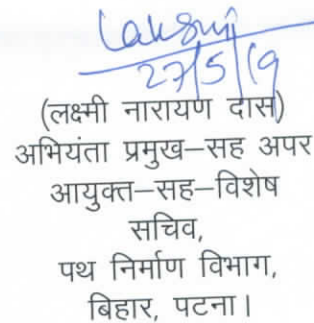 Lakshmi
27/5/19
(लक्ष्मी नारायण दास)
अभियंता प्रमुख–सह अपर
आयुक्त–सह–विशेष
सचिव,
पथ निर्माण विभाग,
बिहार, पटना।